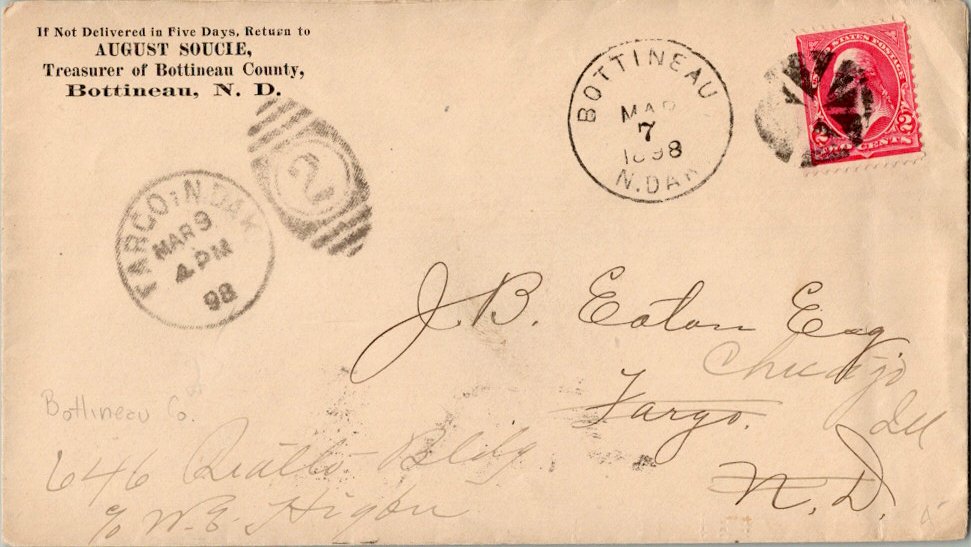 If Not Delivered in Five Days, Return to
AUGUST SOUCIE,
Treasurer of Bottineau County,
Bottineau, N. D.
BOTTINEAU
MAR
7
1898
N. DAK
UNITED STATES POSTAGE
2 2
TWO CENTS
2
FARGO, N. DAK
MAR 9
4 PM
98
J. B. Eaton Esq
Chicago
Fargo.
Ill
N. D.
Bottineau Co.
646 Rialto Bldg
c/o W. E. Higbu